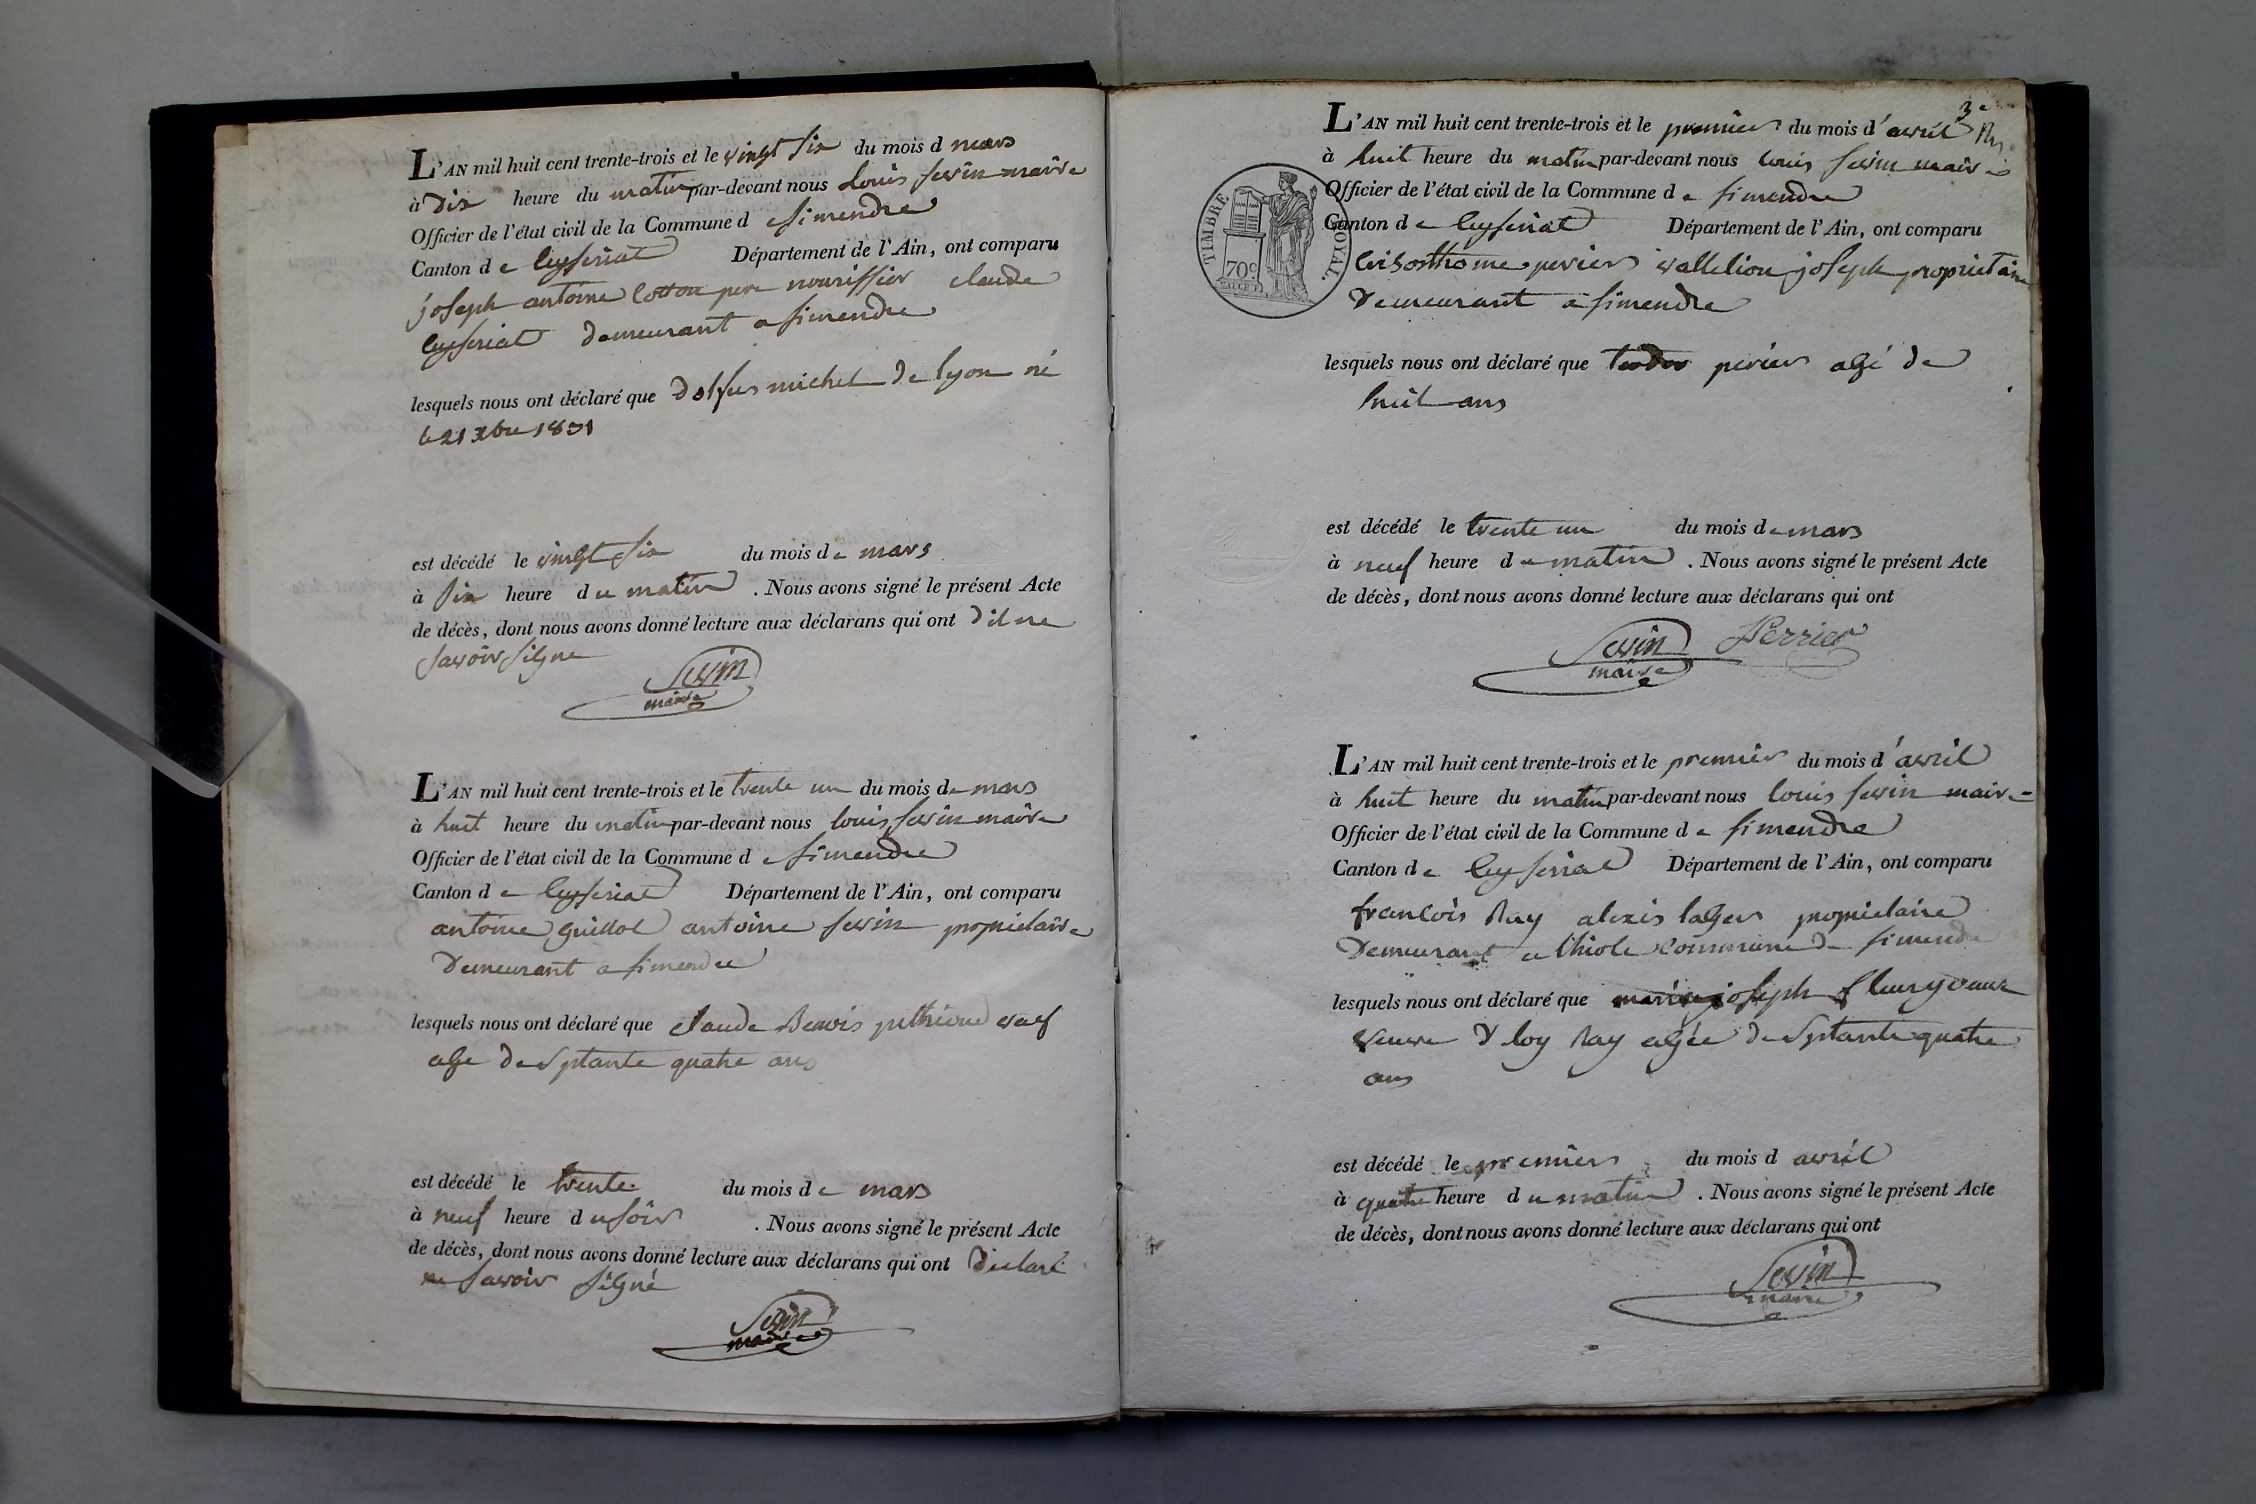 L'AN mil huit cent trente-trois et le vingt six du mois d mars
à Dix heure du matin par-devant nous Louis sevin maire
Officier de l'état civil de la Commune d e simendre
Canton d e Ceyseriat Département de l'Ain, ont comparu
joseph antoine Cotton pere nourissier claude
Ceyseriat demeurant a simendre
lesquels nous ont déclaré que Dolfus michel de lyon né
le 21 xbre 1831
est décédé le vingt six du mois de mars
à six heure du matin. Nous avons signé le présent Acte
de décès, dont nous avons donné lecture aux déclarans qui ont dit ne
savoir signe
Sevin
maire
L'AN mil huit cent trente-trois et le trente un du mois de mars
à huit heure du matin par-devant nous louis sevin maire
Officier de l'état civil de la Commune d e simendre
Canton d e Ceyseriat Département de l'Ain, ont comparu
antoine guillot antoine sevin proprietaire
Demeurant a simendre
lesquels nous ont déclaré que claude Benois veuf
age de septante quatre ans
est décédé le trente du mois de mars
à neuf heure du soir. Nous avons signé le présent Acte
de décès, dont nous avons donné lecture aux déclarans qui ont declaré
ne savoir signé
Sevin
maire
3e
L'AN mil huit cent trente-trois et le premier du mois d'avril
à huit heure du matin par-devant nous louis sevin maire
Officier de l'état civil de la Commune d e simendre
Canton d e Ceyseriat Département de l'Ain, ont comparu
TIMBRE ROYAL
70c
Crisosthome perier vallelion joseph proprietaire
Demeurant a simendre
lesquels nous ont déclaré que perier agé de
huit ans
est décédé le trente un du mois de mars
à neuf heure du matin. Nous avons signé le présent Acte
de décès, dont nous avons donné lecture aux déclarans qui ont
Sevin Perrier
maire
L'AN mil huit cent trente-trois et le premier du mois d'avril
à huit heure du matin par-devant nous louis sevin maire
Officier de l'état civil de la Commune d e simendre
Canton d e Ceyseriat Département de l'Ain, ont comparu
francois Ray alexis lager propriétaire
Demeurant a Chiole commune de simendre
lesquels nous ont déclaré que joseph fleuryvaux
veuve d loy Ray agée de septante quatre
ans
est décédé le premier du mois d avril
à quatre heure du matin. Nous avons signé le présent Acte
de décès, dont nous avons donné lecture aux déclarans qui ont
Sevin
maire